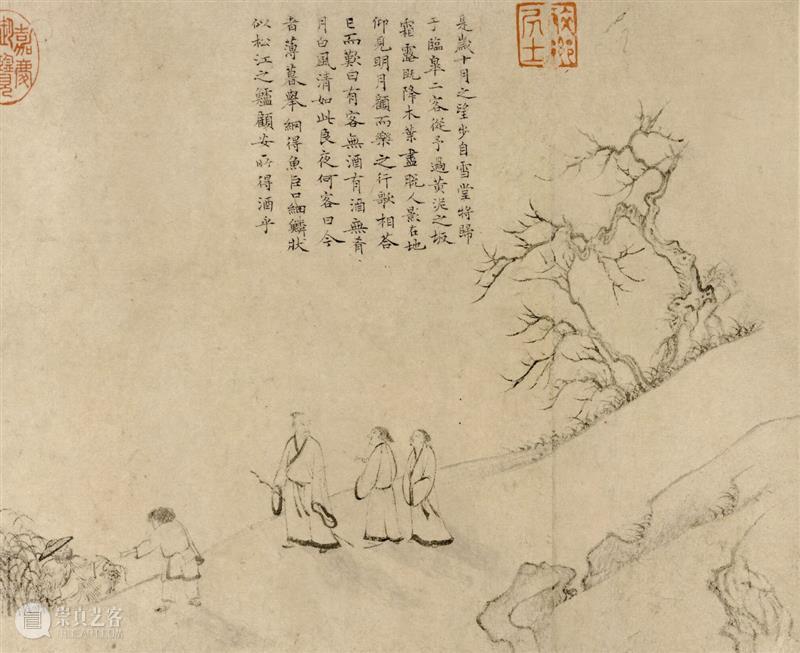 是歲十月之望步自雪堂將歸
于臨皋二客從予過黃泥之坂
霜露既降木葉盡脫人影在地
仰見明月顧而樂之行歌相荅
已而歎曰有客無酒有酒無肴
月白風清如此良夜何客曰今
者薄暮舉網得魚巨口細鱗狀
似松江之鱸顧安所得酒乎
嘉慶
崇真艺客